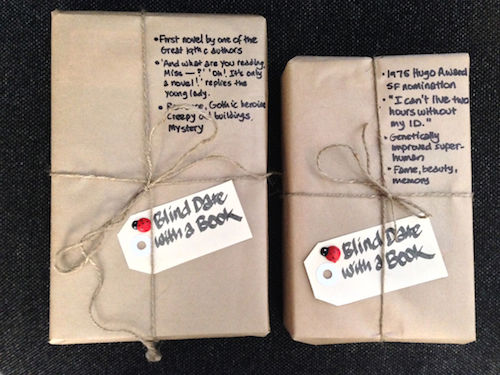 • First novel by one of the
Great 19th c authors
• 'And what are you reading,
Miss — ?' 'Oh! It's only
a novel!' replies the
young lady.
Gothic heroine
creepy buildings,
mystery
Blind Date
with a Book
• 1975 Hugo Award
SF nomination
• "I can't live two
hours without
my I.D."
• Genetically
improved super-
human
• Fame, beauty,
memory
Blind Date
with a Book